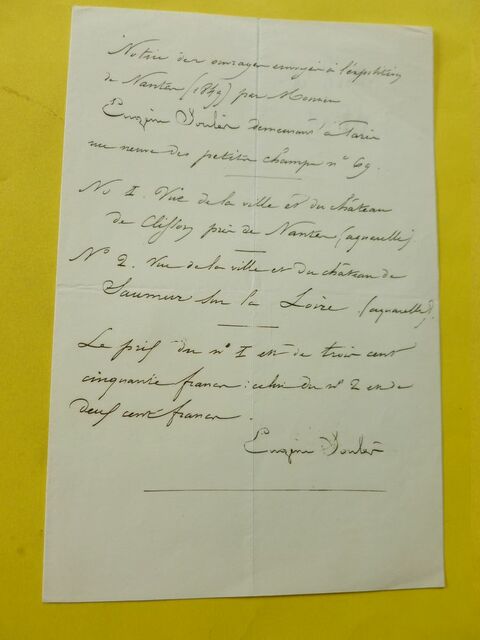 Notice des ouvrages envoyés à l'exposition
de Nantes (1849) par Monsieur
Eugène Soulès demeurant à Paris
rue neuve des petits champs n° 69.
No 1. Vue de la ville et du château
de Clisson près de Nantes (aquarelle)
N° 2. Vue de la ville et du château de
Saumur sur la Loire (aquarelle).
Le prix du n° 1 est de trois cent
cinquante francs : celui du n° 2 est de
deux cent francs.
Eugène Soulès